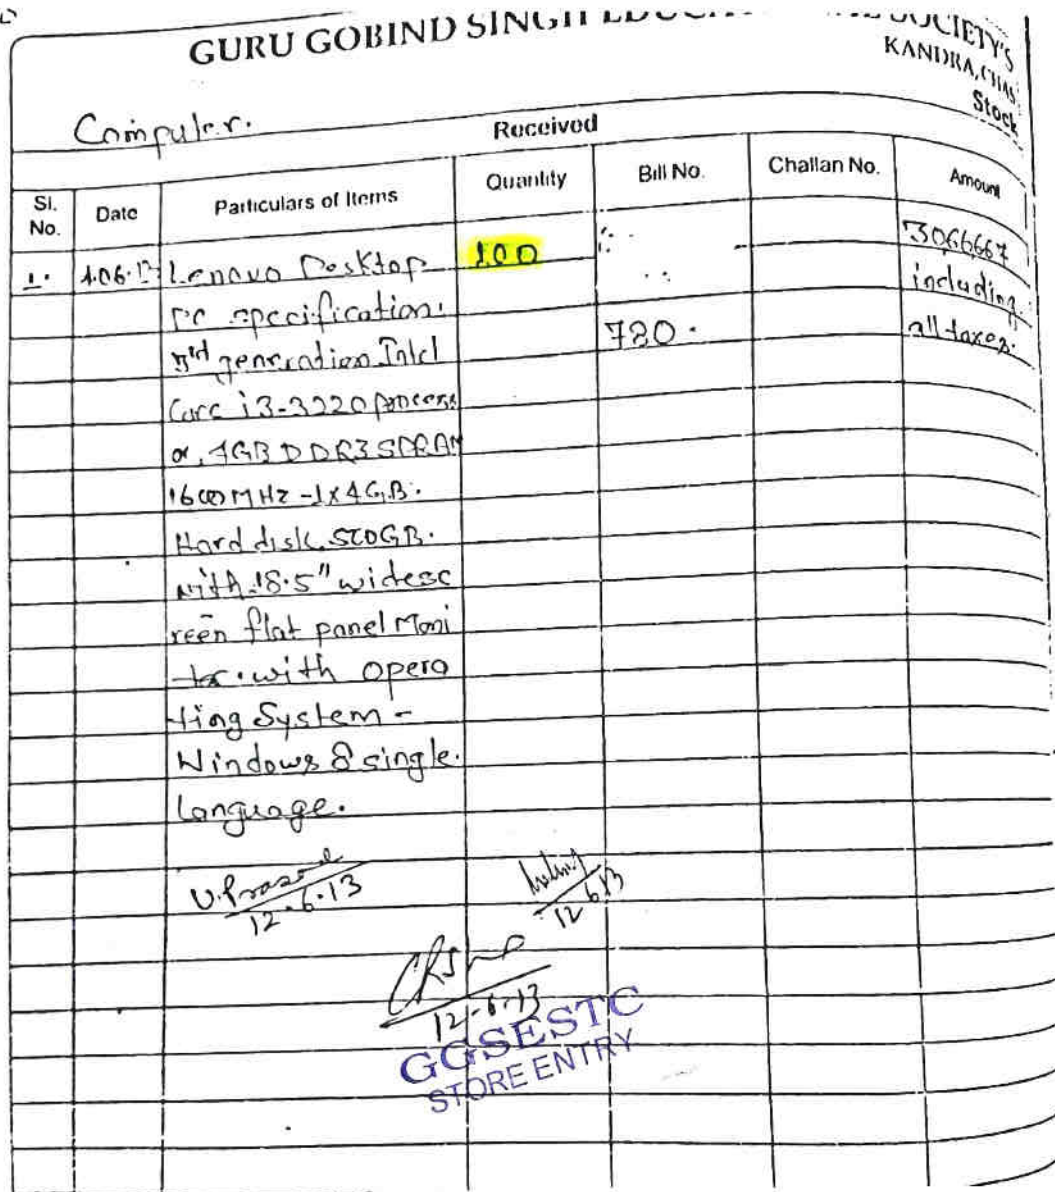 GURU GOBIND SINGH SOCIETY'S
KANDRA, CHAS
Stock
Computer.
Received
Sl. No.
Date
Particulars of Items
Quantity
Bill No.
Challan No.
Amount
1. Lenovo Desktop 100 3066667
PC specification. including
3rd generation Intel 780. all taxes.
Core i3-3220 process
or, 4GB DDR3 SDRAM
1600MHz -1x4GB.
Hard disk 500GB.
with 18.5" widesc
reen flat panel Moni
tor. with opera
ting System -
Windows 8 single.
language.
U. Prasad
12.6.13 12 6 13
12-6-13
GGSESTC
STORE ENTRY